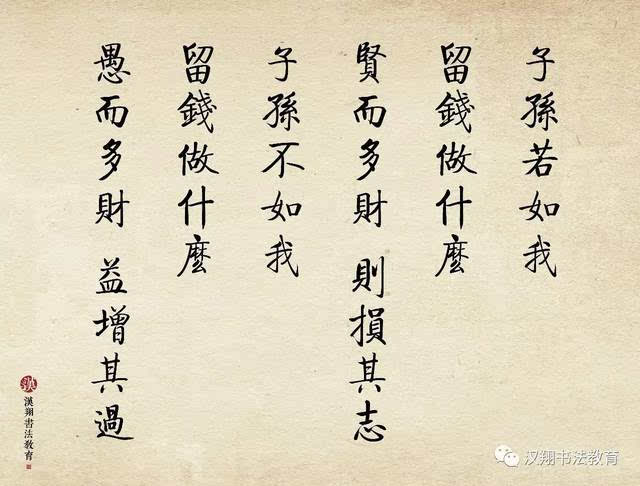 子孫若如我
留錢做什麼
賢而多財 則損其志
子孫不如我
留錢做什麼
愚而多財 益增其過
漢翔書法教育
汉翔书法教育